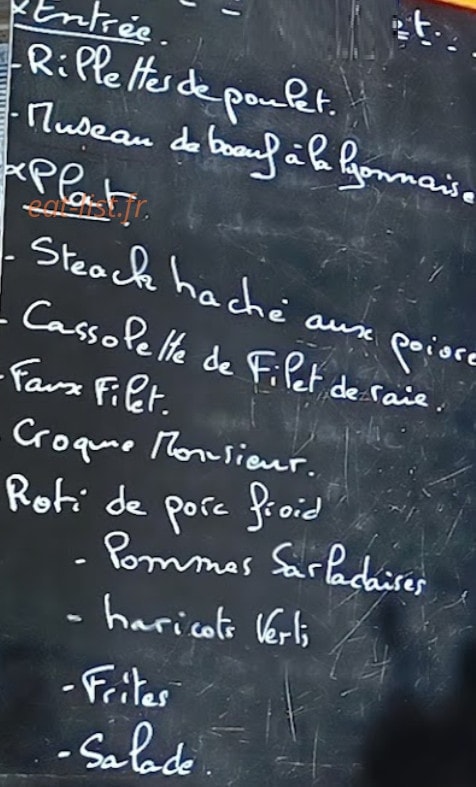 x Entrée.
- Rillettes de poulet.
- Museau de bœuf à la lyonnaise
x Plat.
eat-list.fr
- Steack haché aux poivre
- Cassolette de Filet de raie.
- Faux Filet.
Croque Monsieur.
Roti de porc froid
- Pommes Sarladaises
- haricots Verts
- Frites
- Salade.